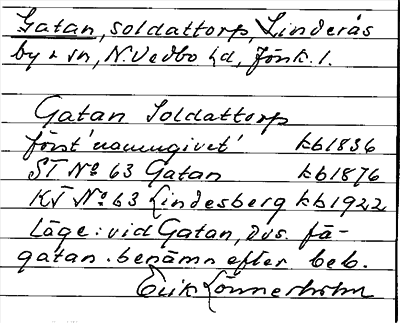 Gatan, soldattorp, Linderås
by & sn, N. Vedbo hd, Jönk. l.
Gatan Soldattorp
först 'namngivet' kb1836
ST No 63 Gatan kb1876
KT No 63 Lindesberg kb1922
Läge: vid Gatan, dvs. fä-
gatan. benämn efter beb.
Erik Lönnerholm